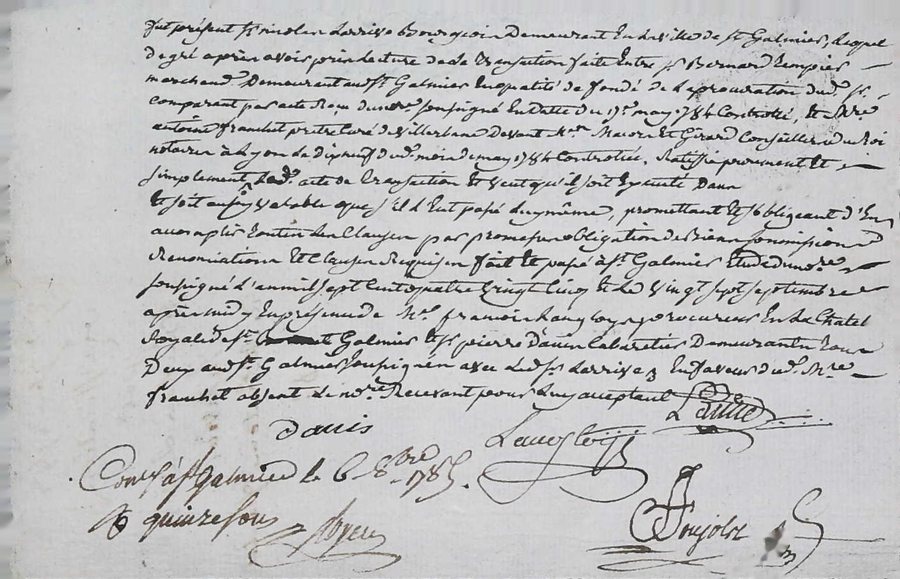 fut présent Sr nicolas Larrivé Bourgeois Demeurant En la ville de St Galmier, Lequel
de gré après avoir pris Lecture de la transaction faite Entre Sr Bernard
marchand Demeurant aud St Galmier En qualité de fondé de La procuration dud. Sr
comparant par acte Reçu du nore soussigné En datte du may 1784 Controllé, Et Mre
antoine franchet pretre curé de villerbane Devant Mes Et Girard Conseillers du Roi
notaires à Lyon Le Dix neuf du d. mois de may 1784 Controllée, Ratiffie purement Et
simplement Lad. acte de transaction Et veut qu'il soit Exécuté Dans
Et soit aussy valable que s'il L'Eut passé Luy même, promettant Et s'obligeant d'En
accomplir toutes Les Clauses par promesse obligation de Biens soumissions
Renonciations Et Clauses Requises fait Et passé à St Galmier Etude du nore
soussigné L'an mil sept Cent quatre vingt Cinq Et Le vingt sept septembre
après midy En présence de Me françois Langlois procureur En La Chatel
Royal de St Galmier Et Sr pierre Davis Cabaretier Demeurants tous
Deux aud St. Galmier soussignés avec Led Sr Larrivé, En faveur dud. Mre
franchet absent Le nore Recevant pour Luy acceptant Larrivé
Davis
Langlois
Conté à St Galmier le 6 8bre 1785.
R quinze sous
Poujolx